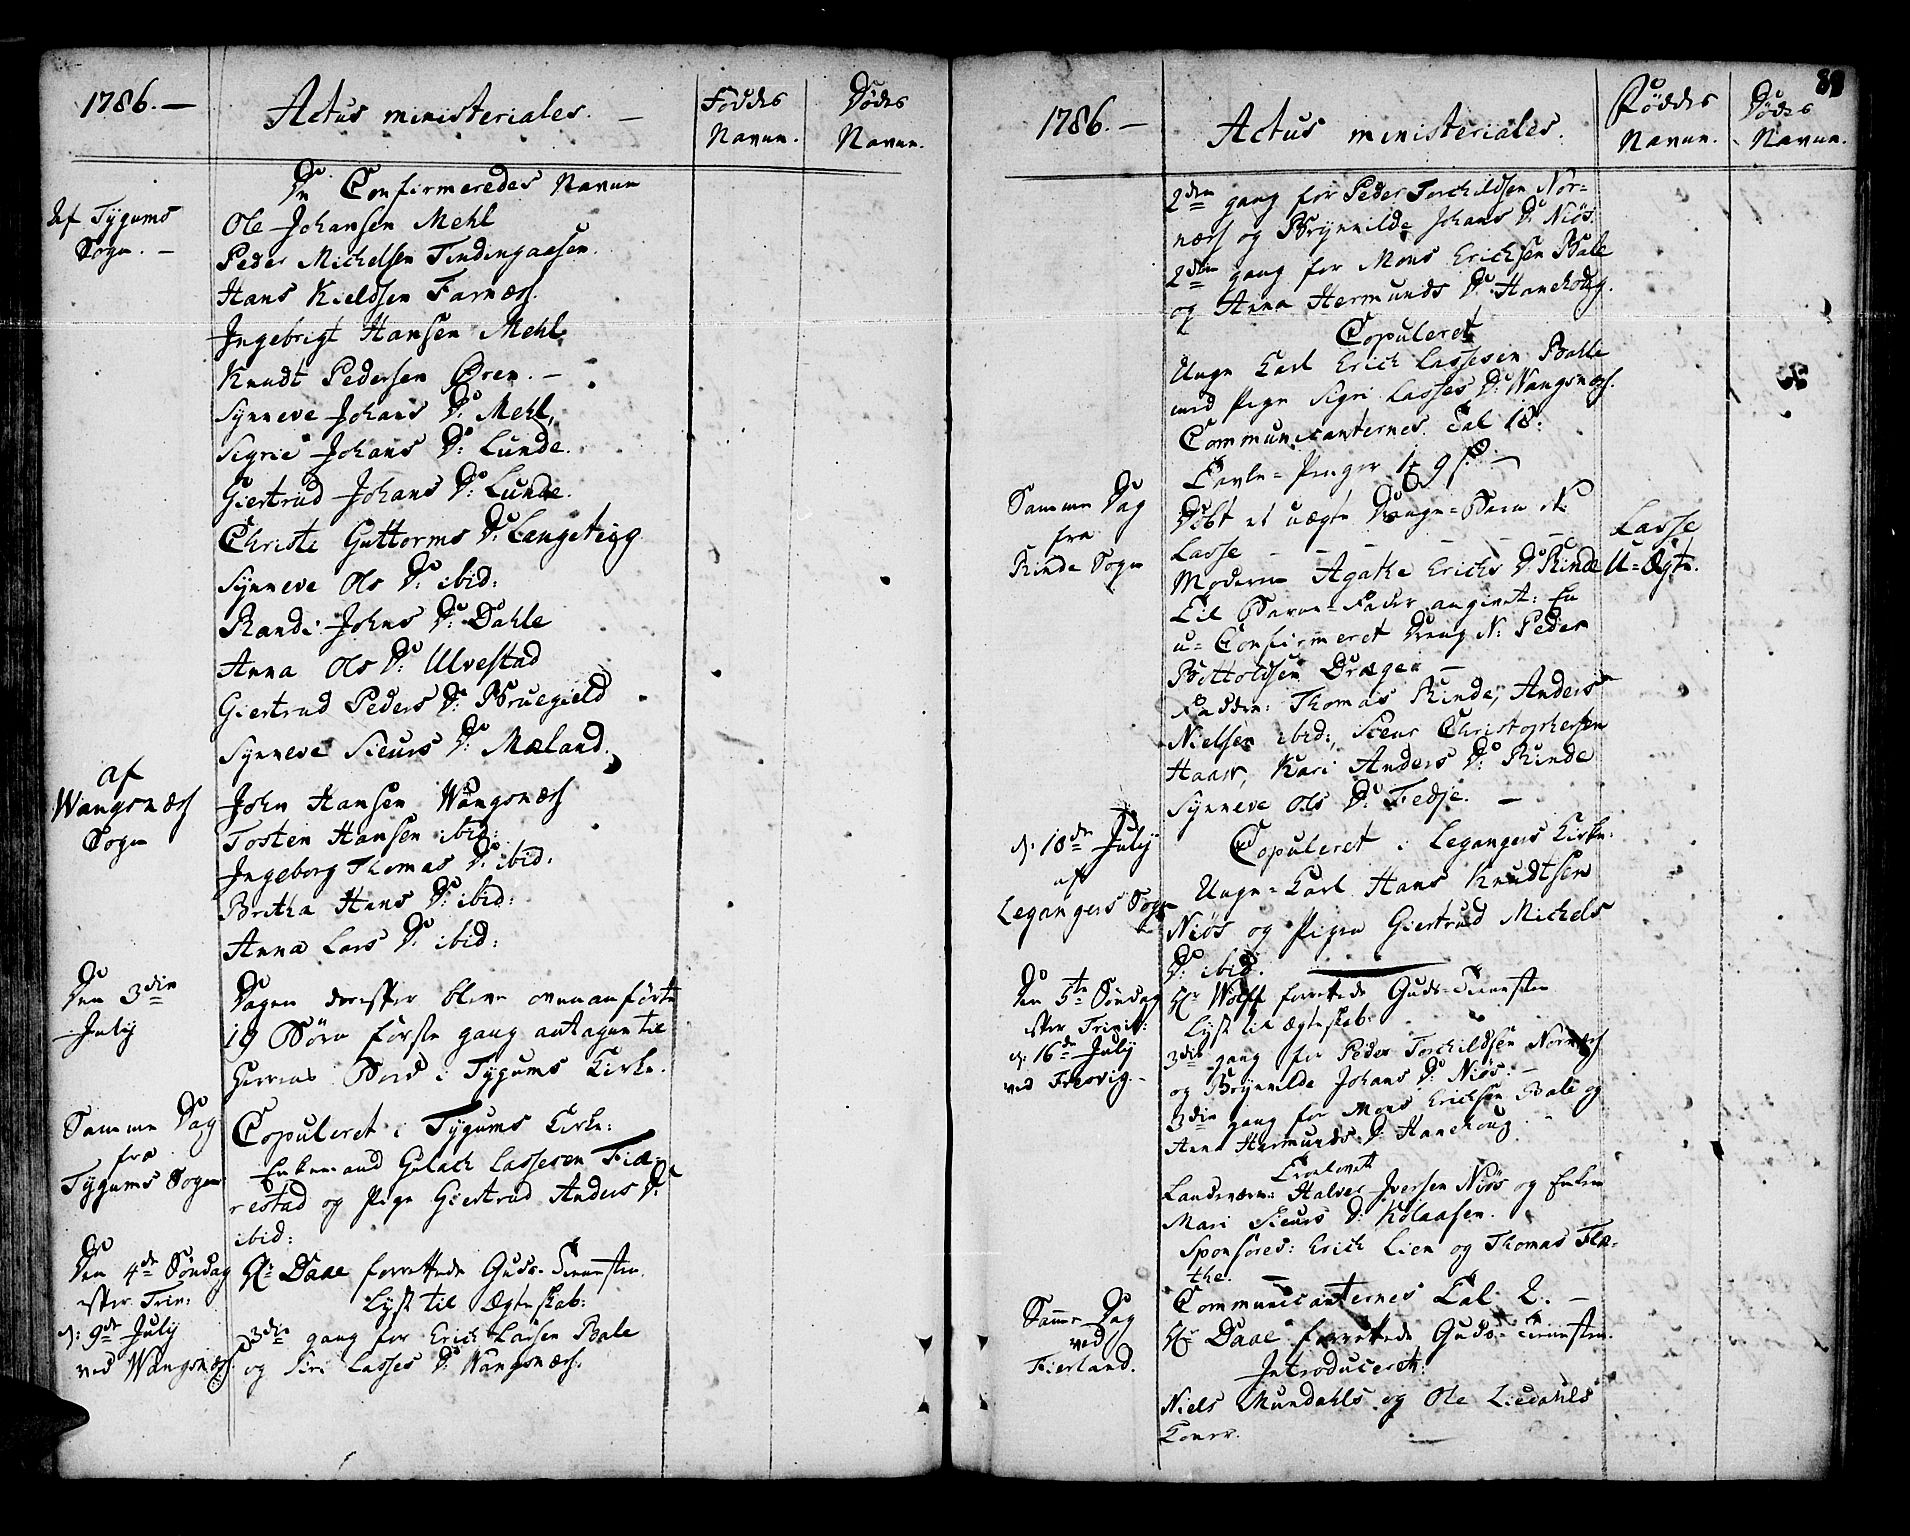 1786. —
Actus ministeriales. —
Föddes
Navne.
Dødes
Navne.
De Confirmeredes Navne
Af Tygums
Sogn. —
Ole Johansen Mehl
Peder Michelsen Tindingaasen.
Hans Kieldsen Farnæs.
Ingebrigt Hansen Mehl
Knudt Pedersen Øren. —
Synneve Johans D: Mehl,
Sigrie Johans D: Lunde.
Giertrud Johans D: Lunde.
Christi Guttorms D: Langeteig
Synneve Ols D: ibid:
Randi Johns D: Dahle
Anna Ols D: Ulvestad
Giertrud Peders D: Bruegield
Synneve Sieurs D: Mæland.
af
Wangsnæs
Sogn
John Hansen Wangsnæs
Tosten Hansen ibid:
Ingeborg Thomas D: ibid.
Britha Hans D: ibid:
Anna Lars D: ibid:
Den 3die
July
Dagen derefter bleve ovenanførte
19 Börn første gang antagne til
Herrens Bord i Tygums Kirke.
Samme Dag
fra
Tygums Sogn
Copuleret i Tygums Kirke:
Enkemand Gulach Lassesen Fiæ-
restad og Pige Giertrud Anders D:
ibid:
Den 4de Søndag
efter Trin:
d: 9de July
ved Wangsnæs.
Hr Daae forrettede Guds-Tienesten.
Lyst til Ægteskab:
3die gang for Erich Lassen Bale
og Siri Lasses D: Wangsnæs.
88
1786. —
Actus ministeriales.
Föddes
Navne.
Dødes
Navne.
2den gang for Peder Torchildsen Nor-
næs og Brynnilde Johans D: Niös.
2den gang for Mons Erichsen Bale
og Anna Hermunds D: Hanehoug.
Copuleret
Unge Karl Erich Lassesen Bahle
med Pige Sigri Lasses D: Wangsnæs.
Communicanternes Tal 18.
Tavle-Penger 1 9 s. —
Samme Dag
fra
Rinde Sogn
Döbt et uægte Drenge-Barn N.
Lasse — — — — —
Lasse
U-Ægte.
Moderen Agathe Erichs D: Rinde
Til Barne-Fader angivet: En
u-Confirmeret Dreng N: Peder
Bottoldsen Dragen —
Faddere: Thomas Rinde, Anders
Nielsen ibid:, Sieur Christophersen
Haaw, Kari Anders D: Rinde
Synneve Ols D: Fedje. —
d. 10de July
af
Legangers Sogn
Copuleret i Legangers Kirke:
Unge-Karl Hans Knudtsen
Niös og Pigen Giertrud Michels
D: ibid.
Den 5te Søndag
efter Trinit:
d: 16de July
ved Fresvig. —
Hr Wolff forrettede Guds-Tienesten
Lyst til Ægteskab:
3die gang for Peder Torchildsen Nornæs
og Brynnilde Johans D: Niös. —
3die gang for Mons Erichsen Bale og
Anna Hermunds D: Hanehoug.
Trolovet
Landværn: Halver Iversen Niös og Enken
Mari Sieurs D: Kolaasen.
Sponsores: Erich Lien og Thomas Flæ-
the. —
Communicanternes Tal 2. —
Samme Dag
ved
Fierland.
Hr Daae forrettede Guds-Tienesten.
Introduceret:
Niels Mundahls og Ole Liedahls
Koner.